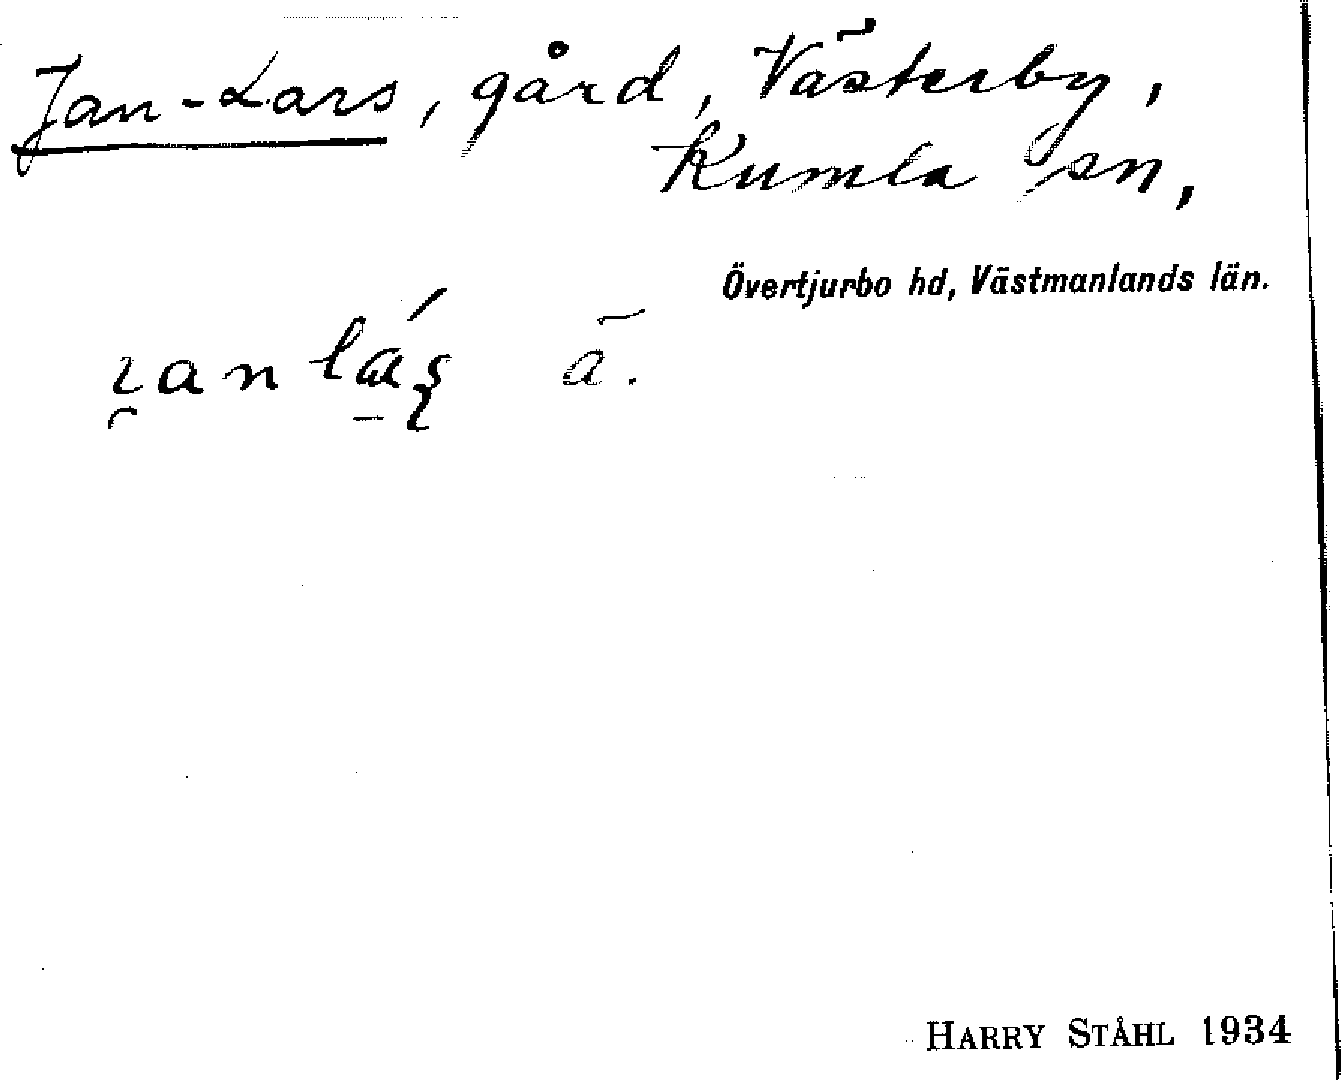 Jan-Lars, gård, Västerby,
Kumla sn,
Övertjurbo hd, Västmanlands län.
ā.
HARRY STÅHL 1934